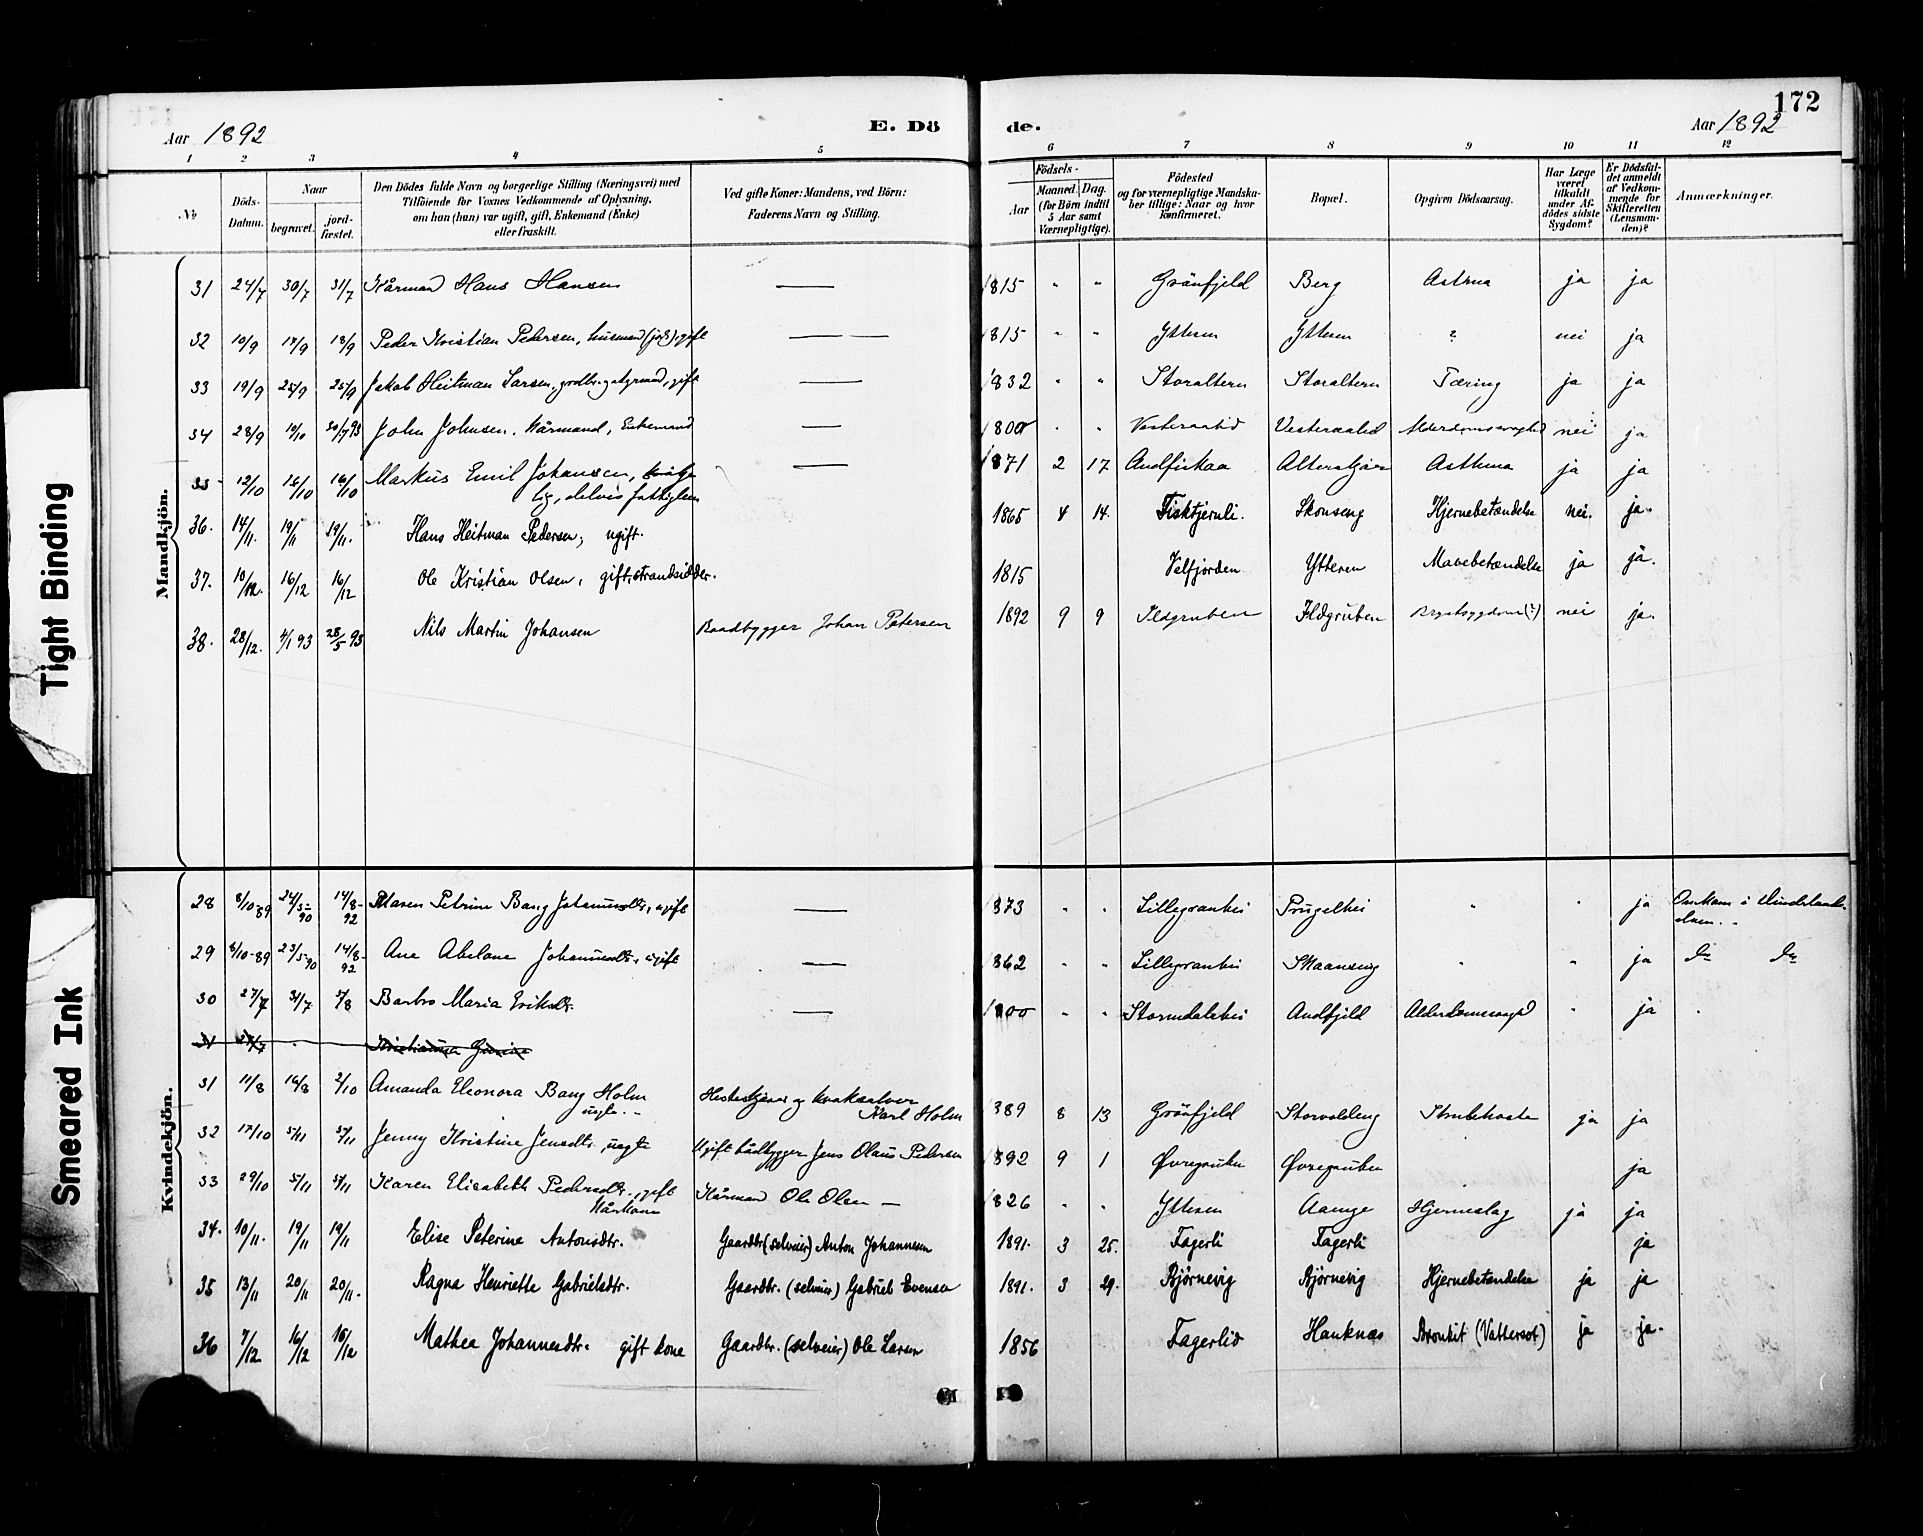 172
Aar 1892
E. Dö
de.
Aar 1892
1 2 3 4 5
6 7 8 9 10 11 12
No
Döds-
Datum.
Naar
begravet.
jord-
fæstet.
Den Dödes fulde Navn og borgerlige Stilling (Næringsvei) med
Tilföiende för Voxnes Vedkommende af Oplysning,
om han (hun) var ugift, gift, Enkemand (Enke)
eller fraskilt.
Ved gifte Koner: Mandens, ved Börn:
Faderens Navn og Stilling.
Födsels-
Aar
Maaned. Dag.
(for Börn indtil
5 Aar samt
Værnepligtige).
Födested
og for værnepligtige Mandska-
ber tillige: Naar og hvor
konfirmeret.
Bopæl.
Opgiven Dödsaarsag.
Har Læge
været
tilkaldt
under Af-
dödes sidste
Sygdom?
Er Dödsfal-
det anmeldt
af Vedkom-
mende for
Skifteretten
(Lensman-
den)?
Anmærkninger.
Tight Binding
Smeared Ink
Mandkjön.
31 24/7 30/7 31/7 Kårmand Hans Hansen — 1815 " " Grönfjeld Berg Asthma ja ja
32 10/9 17/9 18/9 Peder Kristian Pedersen, husmand (jord), gift — — 1815 " " Ytteren Ytteren ? nei ja
33 19/9 25/9 25/9 Jakob Heitman Larsen, gift — 1832 " " Storalteren Storalteren Tæring ja ja
34 28/9 10/10 30/7 93 John Johnsen, Kårmand, Enkemand — 1800 " " Vesteraalid Vesteraalid Alderdomssvaghed nei ja
35 12/10 16/10 16/10 Markus Emil Johansen,
lig, delvis fattiglem — 1871 2 17 Andfiskaa Alterskjær Asthma ja ja
36. 14/11. 19/11 19/11. Hans Heitman Pedersen; ugift. 1865 4 14. Fisktjernli. Skonseng Hjernebetændelse nei. ja.
37. 10/12. 16/12 16/12 Ole Kristian Olsen, gift, strandsidder. 1815 Velfjorden Ytteren Mavebetændelse ja ja.
38. 28/12. 4/1 93 28/5 93 Nils Martin Johansen Baadbygger Johan Petersen 1892 9 9 Ildgruben Ildgruben Brystsygdom (?) nei ja.
Kvindekjön.
28 8/10-89 24/5-90 14/8-92 Maren Petrine Bang Johannesdtr., ugift — 1873 " " Lillegranhei Prugelhei " " ja Omkom i
29 8/10-89 23/5-90 14/8-92 Ane Abelone Johannesdtr., ugift — 1862 " " Lillegranhei Skaanseng " " ja do do
30 27/7 31/7 5/8 Barbro Maria Eriksdtr. — 1800 " " Stormdalshei Andfjeld Alderdomssvaghed " ja
31 Kristianna
31 11/8 16/8 2/10 Amanda Eleonora Bang Holm
ugte. Hesteskjærer og kvaksalver
Karl Holm 1889 8 13 Grönfjeld Storvolleng Strubehoste ja ja
32 17/10 5/11 5/11 Jenny Kristine Jensdtr., uegte Ugift bådbygger Jens Olaus Pedersen 1892 9 1 Øvregruben Øvregruben ja
33 29/10 5/11 5/11 Karen Elisabeth Pedersdtr., gift
Kårkone Kårmand Ole Olsen — 1826 " " Ytteren Aange Hjerneslag ja ja
34. 10/11. 19/11 19/11 Elise Peterine Antonsdtr. Gaardbr. (selveier) Anton Johannesen 1891. 3 25. Fagerli Fagerli ja
35 13/11 20/11 20/11. Ragna Henriette Gabrielsdtr. Gaardbr. (selveier) Gabriel Evensen 1891. 3 29. Bjørnevig Bjørnevig Hjernebetændelse ja ja
36 7/12 16/12 16/12 Mathea Johannesdtr. gift kone Gaardbr. (selveier) Ole Larsen 1856 Fagerlid Hauknæs Bronkit (Vattersot) ja ja.